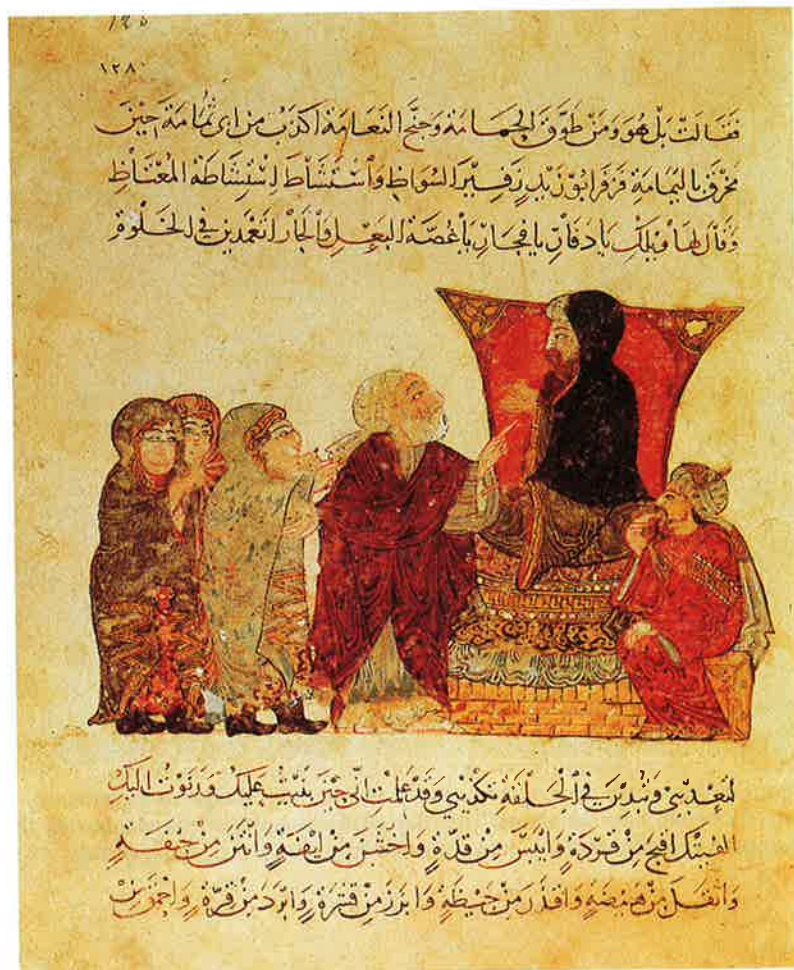 ١٢٨٠
فقَالَتْ بَلْ هُوَ وَمَنْ طَوَّقَ الْحَمَامَةَ وَجَنَّحَ النَعَامَةَ اكذَبُ مِنْ ابى ثُمَامَةَ حِيْنَ
مَخْرَقَ بِاليَمَامَةِ فَزَفَرَ ابُوْ زَيْدٍ زَفِيْرَ الشُوَاظِ وَاسْتَشَاطَ اسْتِشَاطَةَ المُغْتَاظِ
وَقَالَ لهَا وَيْلَكِ يَا دَفَارِ يا فَجَارِ يا غُصَّةَ البَعْلِ وَالجَارِ اتَعْمَدِينَ فِى الخَلْوَةِ
لتَعْذِيْبِى وَتُبْدِيْنَ فِى الْحَفْلَةِ تَكْذِيْبِى وَقَدْ عَلِمْتِ انِّى حِيْنَ بَنَيْتُ عَلَيْكِ وَرَنَوْتُ اليْكِ
الفَيْتُكِ اقبَحَ مِنْ قِرْدَةٍ وَايْبَسَ مِنْ قِدَّةٍ وَاخْشَنَ مِنْ لِيْفَةٍ وَانْتَنَ مِنْ جِيْفَةٍ
وَاثْقَلَ مِنْ هَيْضَةٍ وَاقْذَرَ مِنْ حَيْضَةٍ وَابْرَزَ مِنْ قِشْرَةٍ وَابْرَدَ مِنْ قِرَّةٍ وَاحْمَقَ مِنْ